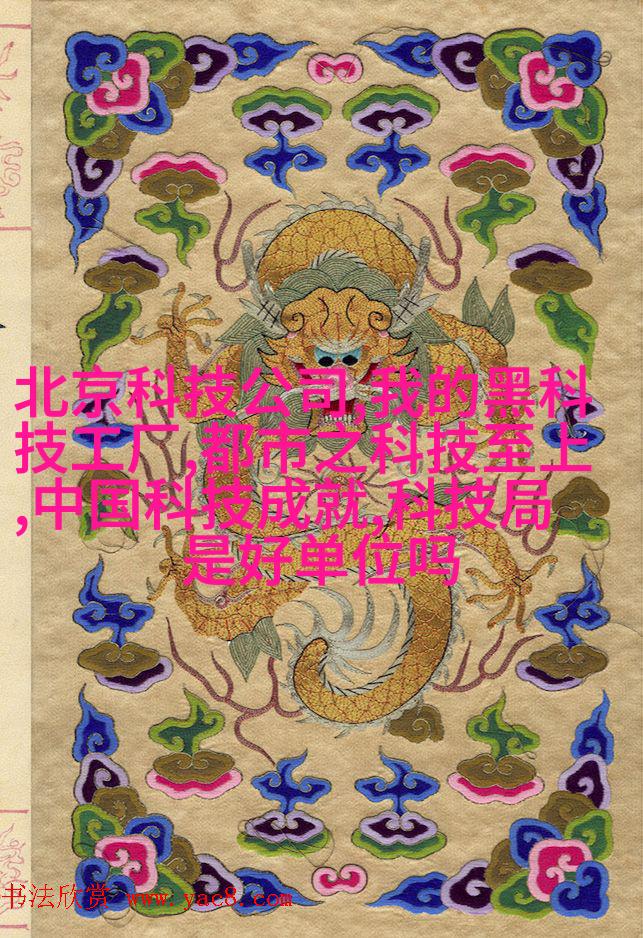 北京科技公司,我的黑科
技工厂,都市之科技至上
,中国科技成就,科技局
是好单位吗
书法欣赏 www.yac8.com